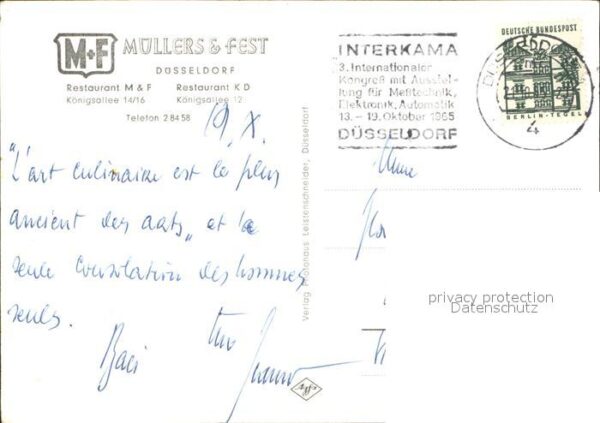 M+F MÜLLERS & FEST
DÜSSELDORF
Restaurant M & F Restaurant K D
Königsallee 14/16 Königsallee 12
Telefon 2 84 58
19. X.
"L'art culinaire est le plus
ancient des aats„ et la
seule consolation des hommes
seuls.
Baci
Verlag Fotohaus Leistenschneider, Düsseldorf
INTERKAMA
3. Internationaler
Kongreß mit Ausstel-
lung für Meßtechnik,
Elektronik, Automatik
13. – 19. Oktober 1965
DÜSSELDORF
DEUTSCHE BUNDESPOST
BERLIN-TEGEL
DÜSSELDORF
4
privacy protection
Datenschutz